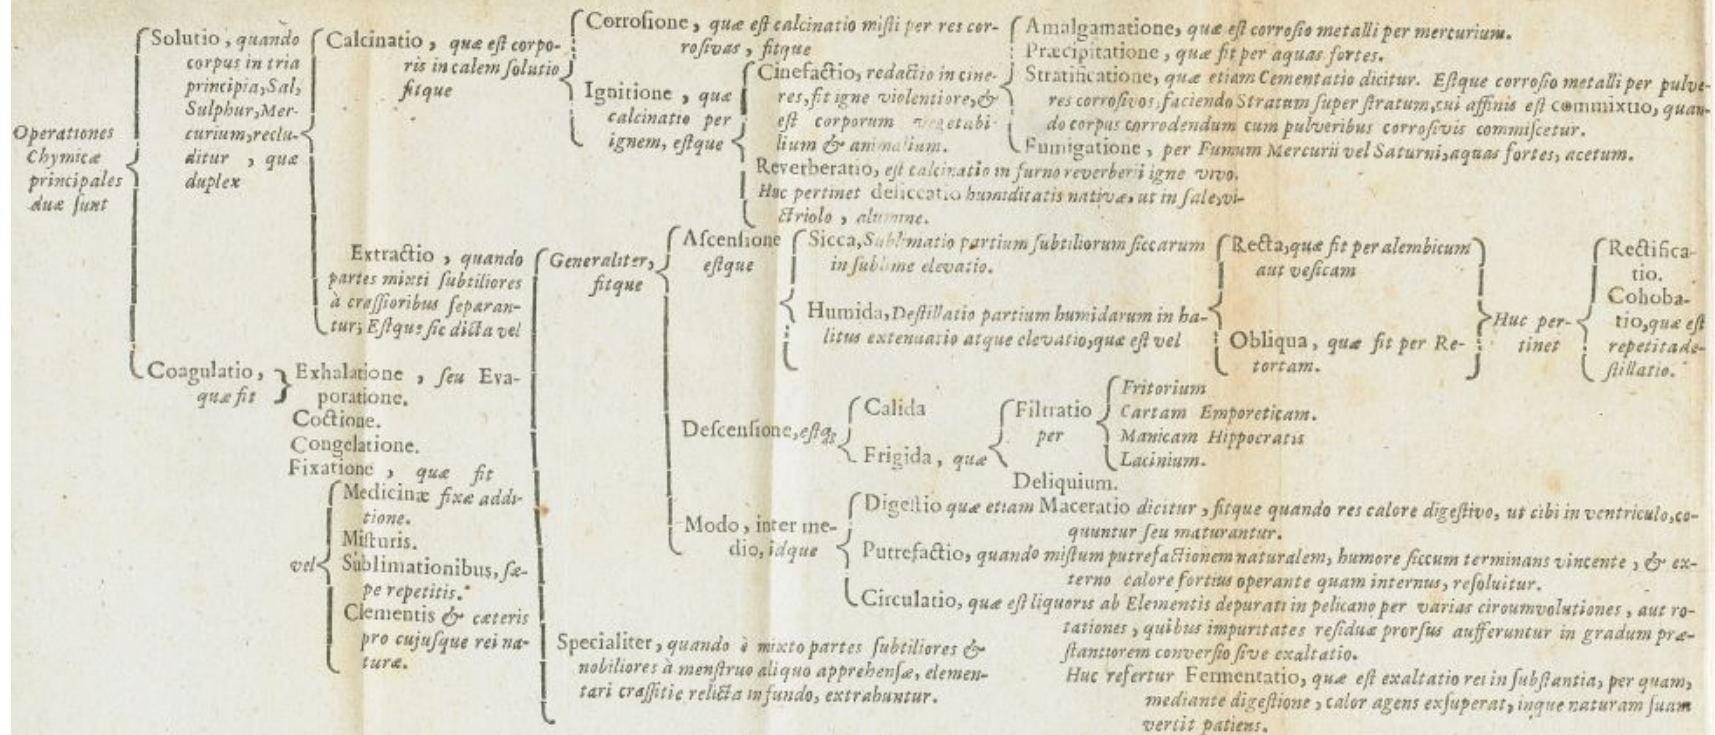 Operationes
Chymicæ
principales
duæ ſunt
Solutio, quando
corpus in tria
principia, Sal,
Sulphur, Mer-
curium, reclu-
ditur, quæ
duplex
Calcinatio, quæ eſt corpo-
ris in calem ſolutio
fitque
Corroſione, quæ eſt calcinatio miſti per res cor-
roſivas, fitque
Amalgamatione, quæ eſt corroſio metalli per mercurium.
Præcipitatione, quæ fit per aquas fortes.
Stratificatione, quæ etiam Cementatio dicitur. Eſtque corroſio metalli per pulve-
res corroſivos, faciendo Stratum ſuper ſtratum, cui affinis eſt commixtio, quan-
do corpus corrodendum cum pulveribus corroſivis commiſcetur.
Fumigatione, per Fumum Mercurii vel Saturni, aquas fortes, acetum.
Ignitione, quæ
calcinatio per
ignem, eſtque
Cinefactio, redactio in cine-
res, fit igne violentiore, &
eſt corporum vegetabi-
lium & animalium.
Reverberatio, eſt calcinatio in furno reverberii igne vivo.
Huc pertinet deſiccatio humiditatis nativæ, ut in ſale, vi-
ctriolo, alumine.
Extractio, quando
partes mixti ſubtiliores
à craſſioribus ſeparan-
tur; Eſtque ſic dicta vel
Generaliter,
fitque
Aſcenſione
eſtque
Sicca, Sublimatio partium ſubtiliorum ſiccarum
in ſublime elevatio.
Humida, Deſtillatio partium humidarum in ha-
litus extenuatio atque elevatio, quæ eſt vel
Recta, quæ fit per alembicum
aut veſicam
Obliqua, quæ fit per Re-
tortam.
Huc per-
tinet
Rectifica-
tio.
Cohoba-
tio, quæ eſt
repetita de-
ſtillatio.
Deſcenſione, eſtq;
Calida
Frigida, quæ
Filtratio
per
Fritorium
Cartam Emporeticam.
Manicam Hippocratis
Lacinium.
Deliquium.
Modo, inter me-
dio, idque
Digeſtio quæ etiam Maceratio dicitur, fitque quando res calore digeſtivo, ut cibi in ventriculo, co-
quuntur ſeu maturantur.
Putrefactio, quando miſtum putrefactionem naturalem, humore ſiccum terminans vincente, & ex-
terno calore fortius operante quam internus, reſoluitur.
Circulatio, quæ eſt liquoris ab Elementis depurati in pelicano per varias circumvolutiones, aut ro-
tationes, quibus impuritates reſiduæ prorſus aufferuntur in gradum præ-
ſtantiorem converſio ſive exaltatio.
Huc refertur Fermentatio, quæ eſt exaltatio rei in ſubſtantia, per quam,
mediante digeſtione, calor agens exſuperat, inque naturam ſuam
vertit patiens.
Specialiter, quando è mixto partes ſubtiliores &
nobiliores à menſtruo aliquo apprehenſæ, elemen-
tari craſſitie relicta in fundo, extrahuntur.
Coagulatio,
quæ fit
Exhalatione, ſeu Eva-
poratione.
Coctione.
Congelatione.
Fixatione, quæ fit
vel
Medicinæ fixæ addi-
tione.
Miſturis.
Sublimationibus, ſæ-
pe repetitis.
Clementis & cæteris
pro cujuſque rei na-
turæ.